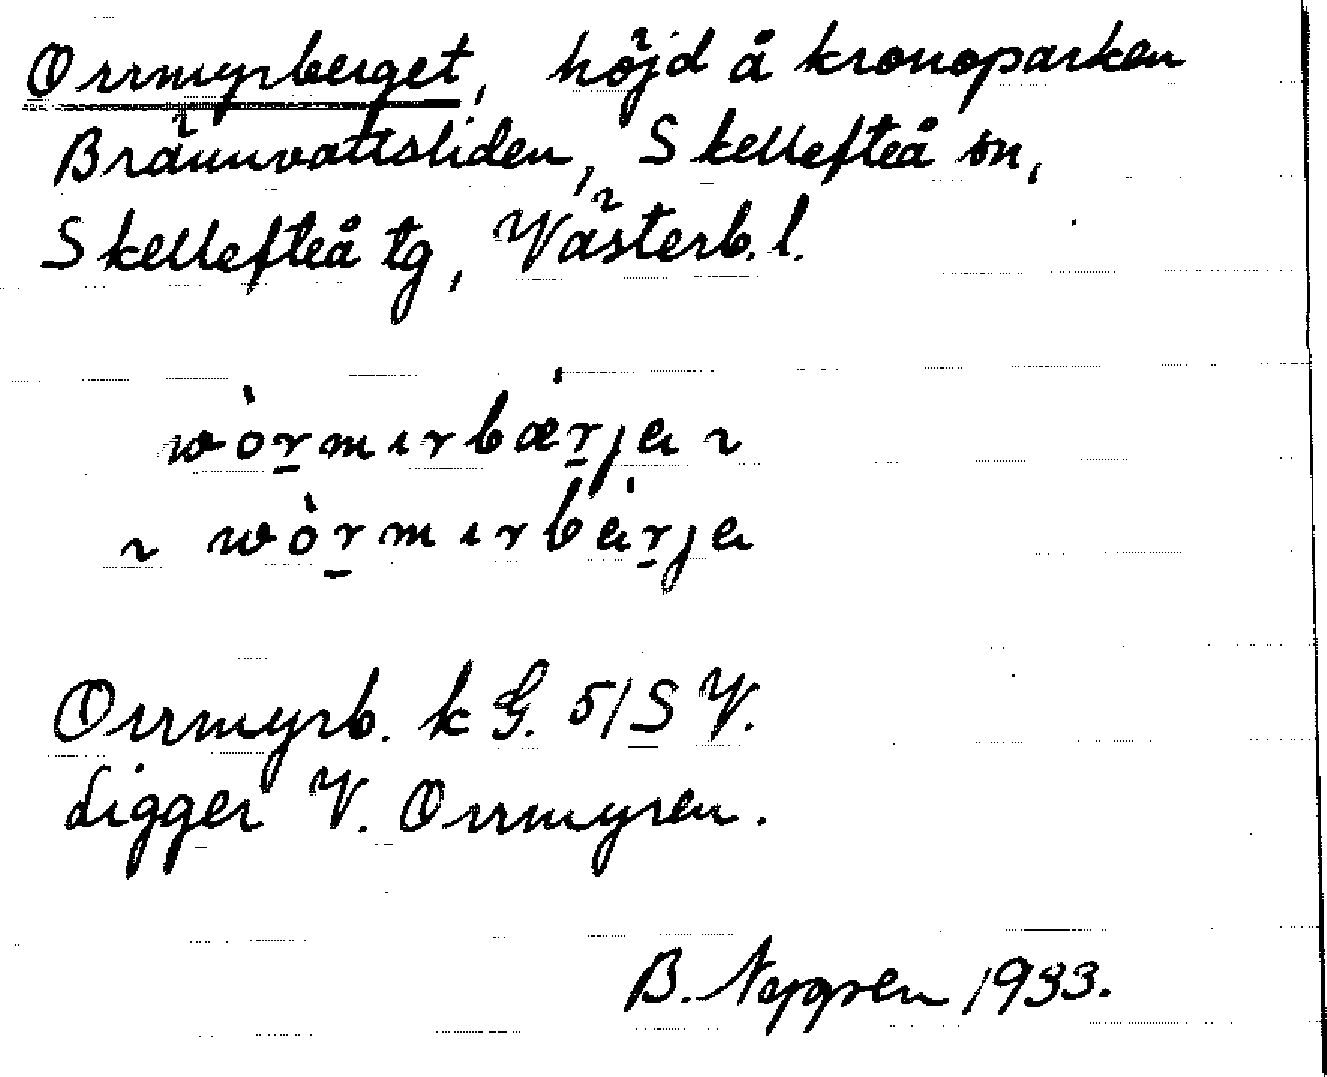 Orrmyrberget, höjd å kronoparken
Brännvattsliden, Skellefteå sn,
Skellefteå tg, Västerb. l.
wòrmırbærja ~
~ wòrmırbàrja
Orrmyrb. k G. 51 S V.
Ligger V. Orrmyren.
B. Nygren 1933.